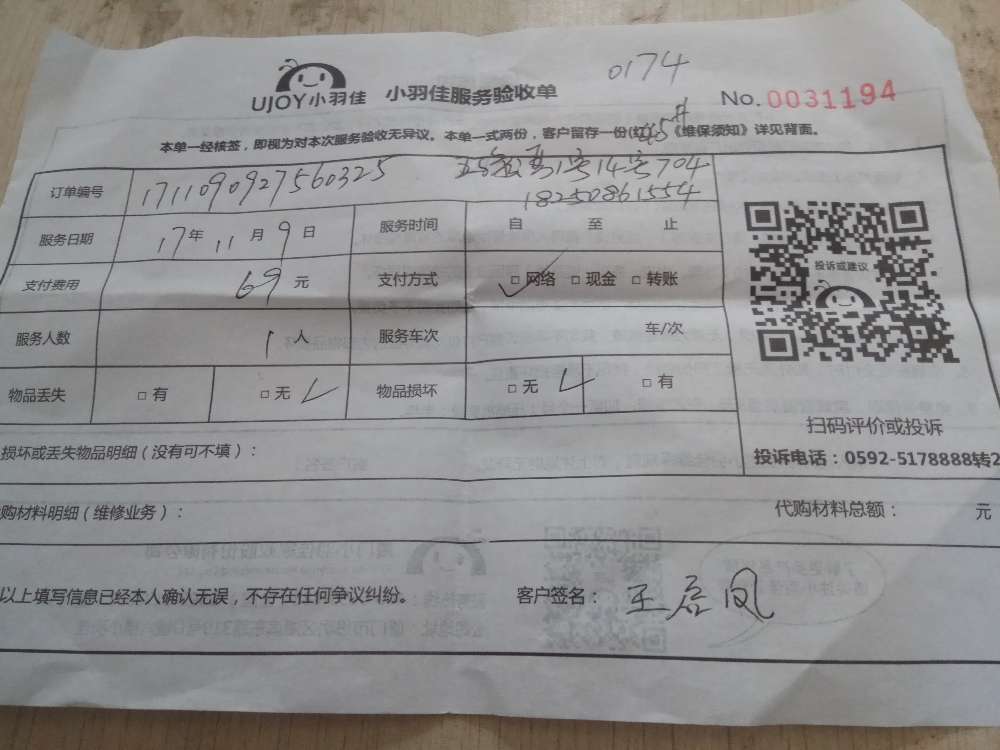 0174
UJOY小羽佳 小羽佳服务验收单 No.0031194
本单一经核签，即视为对本次服务验收无异议。本单一式两份，客户留存一份 《维保须知》详见背面。
1号14字704
订单编号 1711090927560325 18250861554
服务日期 17年11月9日 服务时间 自 至 止
支付费用 69元 支付方式 □网络 □现金 □转账
投诉或建议
服务人数 1人 服务车次 车/次
物品丢失 □有 □无 物品损坏 □无 □有
扫码评价或投诉
损坏或丢失物品明细（没有可不填）：
投诉电话：0592-5178888转2
购材料明细（维修业务）： 代购材料总额： 元
以上填写信息已经本人确认无误，不存在任何争议纠纷。 客户签名：